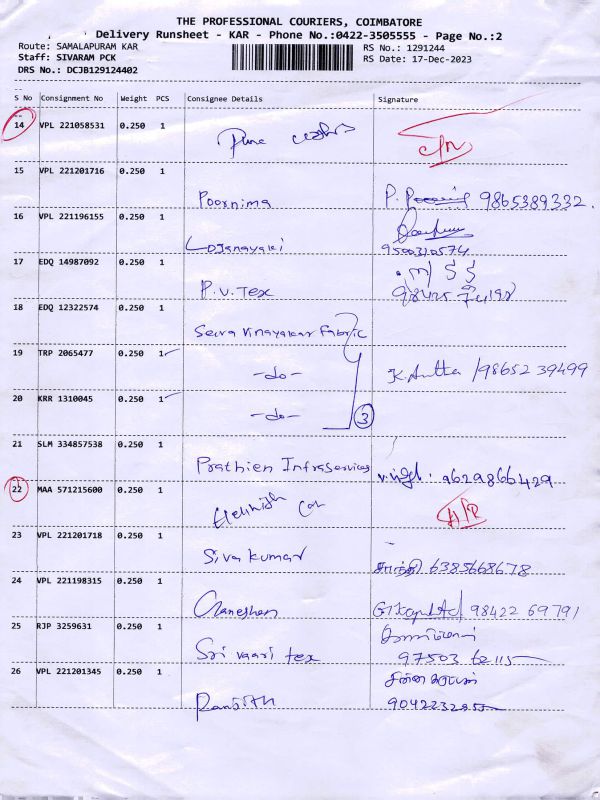 THE PROFESSIONAL COURIERS, COIMBATORE
Delivery Runsheet - KAR - Phone No.:0422-3505555 - Page No.:2
Route: SAMALAPURAM KAR
RS No.: 1291244
Staff: SIVARAM PCK
RS Date: 17-Dec-2023
DRS No.: DCJB129124402
S No Consignment No Weight PCS Consignee Details Signature
14 VPL 221058531 0.250 1
15 VPL 221201716 0.250 1
Poornima P. 9865389332.
16 VPL 221196155 0.250 1
9500310574
17 EDQ 14987092 0.250 1
P.V. Tex
18 EDQ 12322574 0.250 1
Selva Vinayakar Fabric
19 TRP 2065477 0.250 1
-do- /98652 39499
20 KRR 1310045 0.250 1
-do- 3
21 SLM 334857538 0.250 1
Prathien Infraservices 9629866429
22 MAA 571215600 0.250 1
23 VPL 221201718 0.250 1
Siva kumar சாந்தி 6385668678
24 VPL 221198315 0.250 1
Ganeshan 98422 69791
25 RJP 3259631 0.250 1
Sri vaari tex 97503
26 VPL 221201345 0.250 1
Ranjith